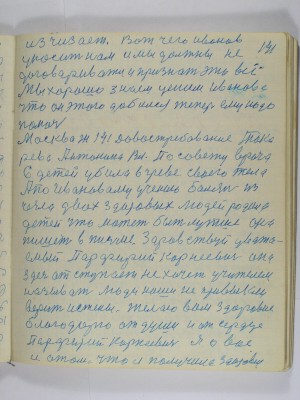 изчизает. Вот чего иванов 191
упосит нам и мы должны не
договаривати и признат это всё
Мы хорошо знаем учением иванова
что он этого добился теперь ему надо
помоч
Москва Ж 191 Довостребование Тока
рева Антонина Вл. По совету врача
6 детей убила в чреве своего тела
А по ивановому учению болят из
числа двух здоровых людей родила
детей что может быт лутше она
пишет в писме Здравствуй уважа
емый Парфирий Корнеевич она
здес отступает не хочет учителем
называт Люди наши не привыкли
верит истены. Желаю вам здоровие
благодарю от души и от сердце
Парфирий Корнеевич Я о вас
и о том, что я получила здоровие